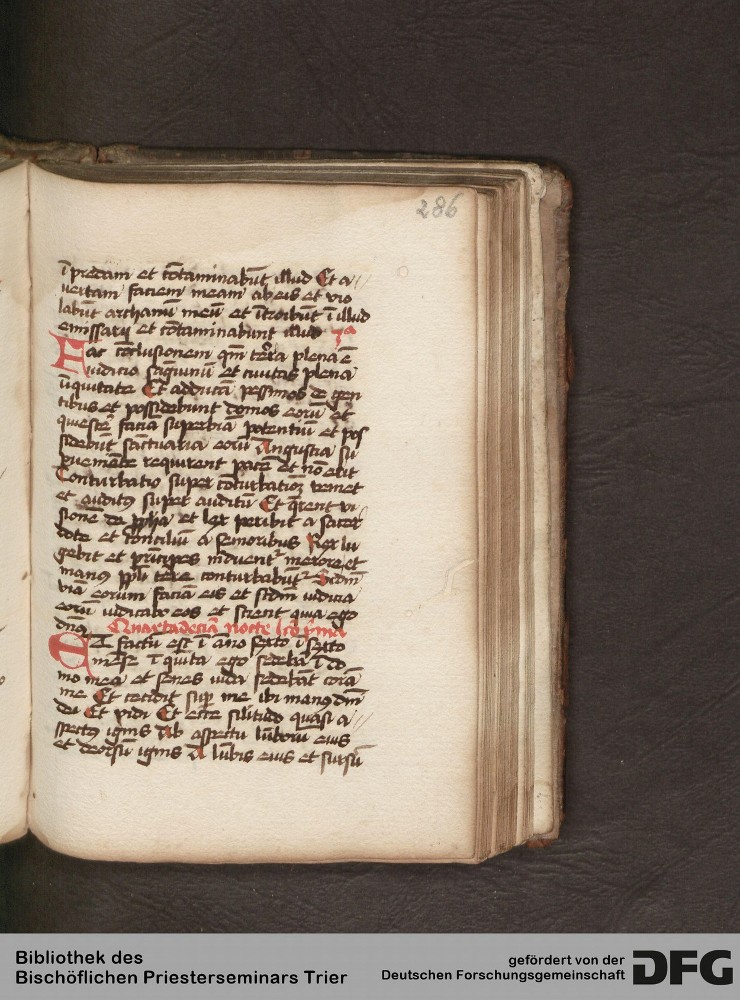 286
i p̄dam et cōtaminabūt illud Et a//
vertam faciem meam ab eis et vio
labūt archanū meū et ītroibūt ī illud
emissarij et cōtaminabunt illud 7ª
Fac cōclusionem qm̄ terra plena ē
iudicio sāguinū et ciuitas plena
iniquitate Et adducā pessimos de gen
tibus et possidebunt domos eorū et
quiescē faciā superbiā potentiū et pos
sidebūt sanctuaria eorū Angustia su
pueniēte requirent pacē et nō erit
Conturbatio super cōturbationē veniet
et auditus super auditū Et q̄rent vi
sionē de ꝓpha et lex peribit a sacer
dote et consiliū a senioribus Rex lu
gebit et prīceps induent᷑ merore et
manus ppl̄i terre conturbabūt᷑ Scdm̄
viā eorum faciā eis et scdm̄ iudicia
eorū iudicabo eos et scient quia ego
dn̄s Quartadecīa nocte lc̄o p̄ma
Et factū est ī āno sexto ī sexto
mēse ī quīta ego sedebā ī do
mo mea et senes iuda sedebāt corā
me Et cecidit sup̄ me ibi manus dn̄i
dei Et vidi Et ecce sil̄itudo quasi a//
spectus ignis Ab aspectu lūborū eius
et deorsū ignis A lūbis eius et sursū
Bibliothek des
Bischöflichen Priesterseminars Trier
gefördert von der
Deutschen Forschungsgemeinschaft
DFG